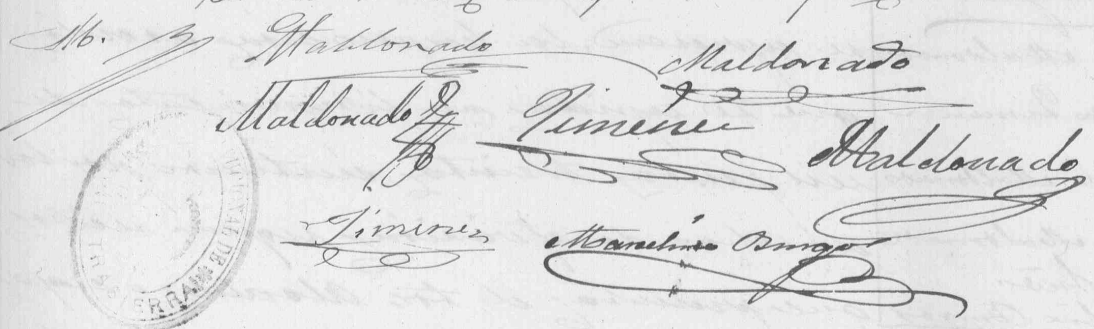 M. Maldonado
Maldonado
Maldonado
Jimenez
Maldonado
Jimenez
Marcelino Burgos